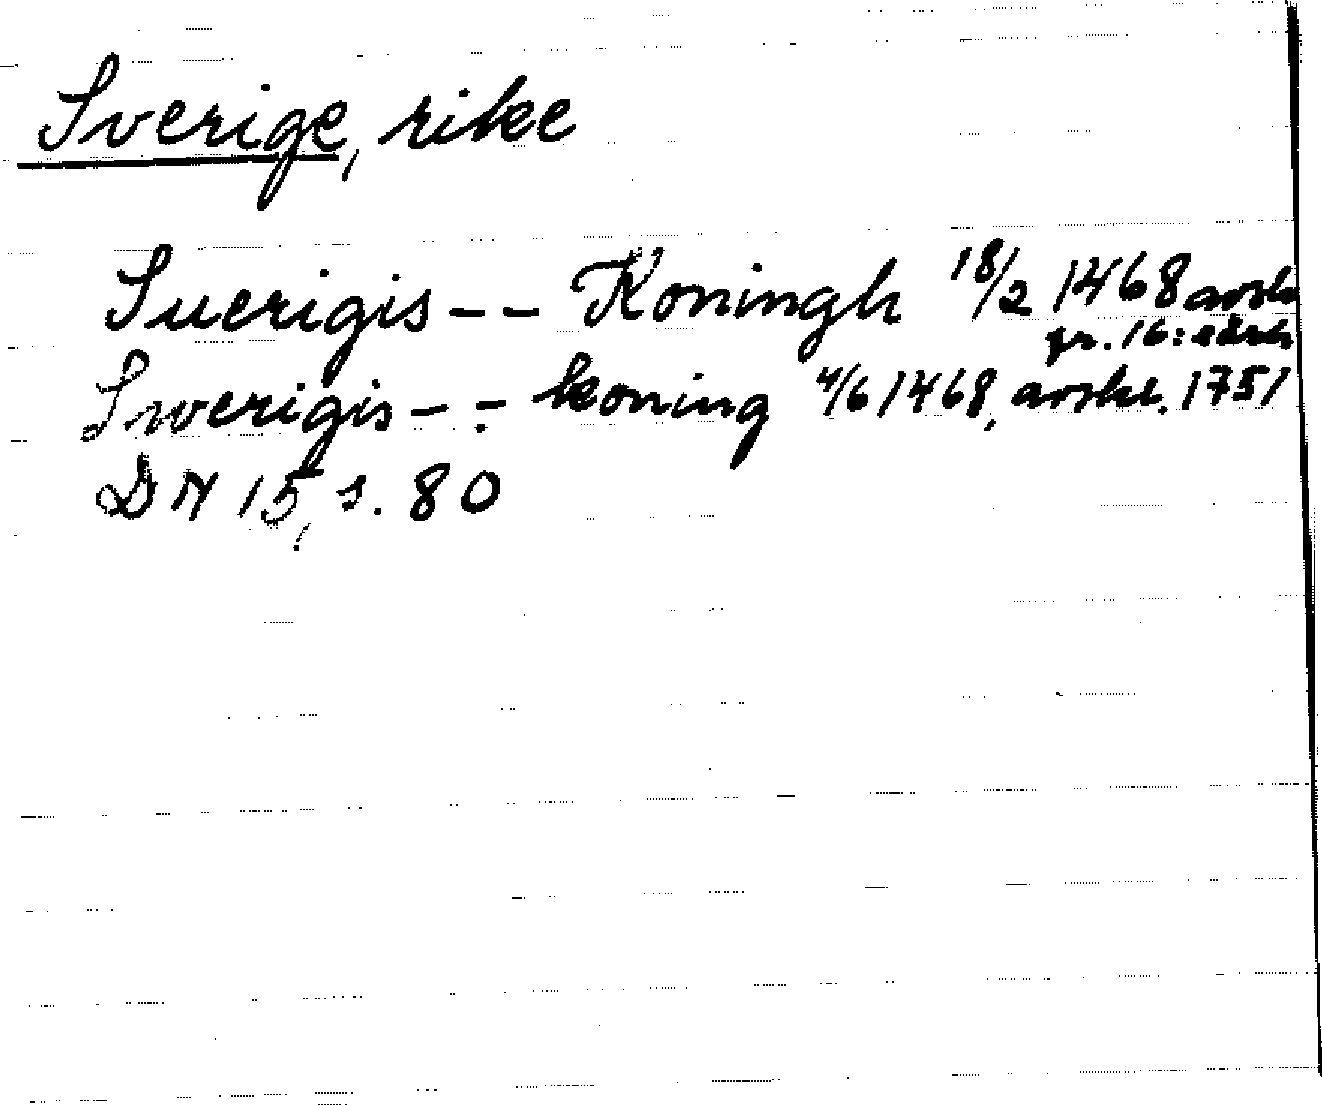 Sverige, rike
Suerigis -- Koningh 18/2 1468 avskr
fr. 16:e årh
Swerigis -- koning 4/6 1468, avskr. 1751
DN 15, s. 80